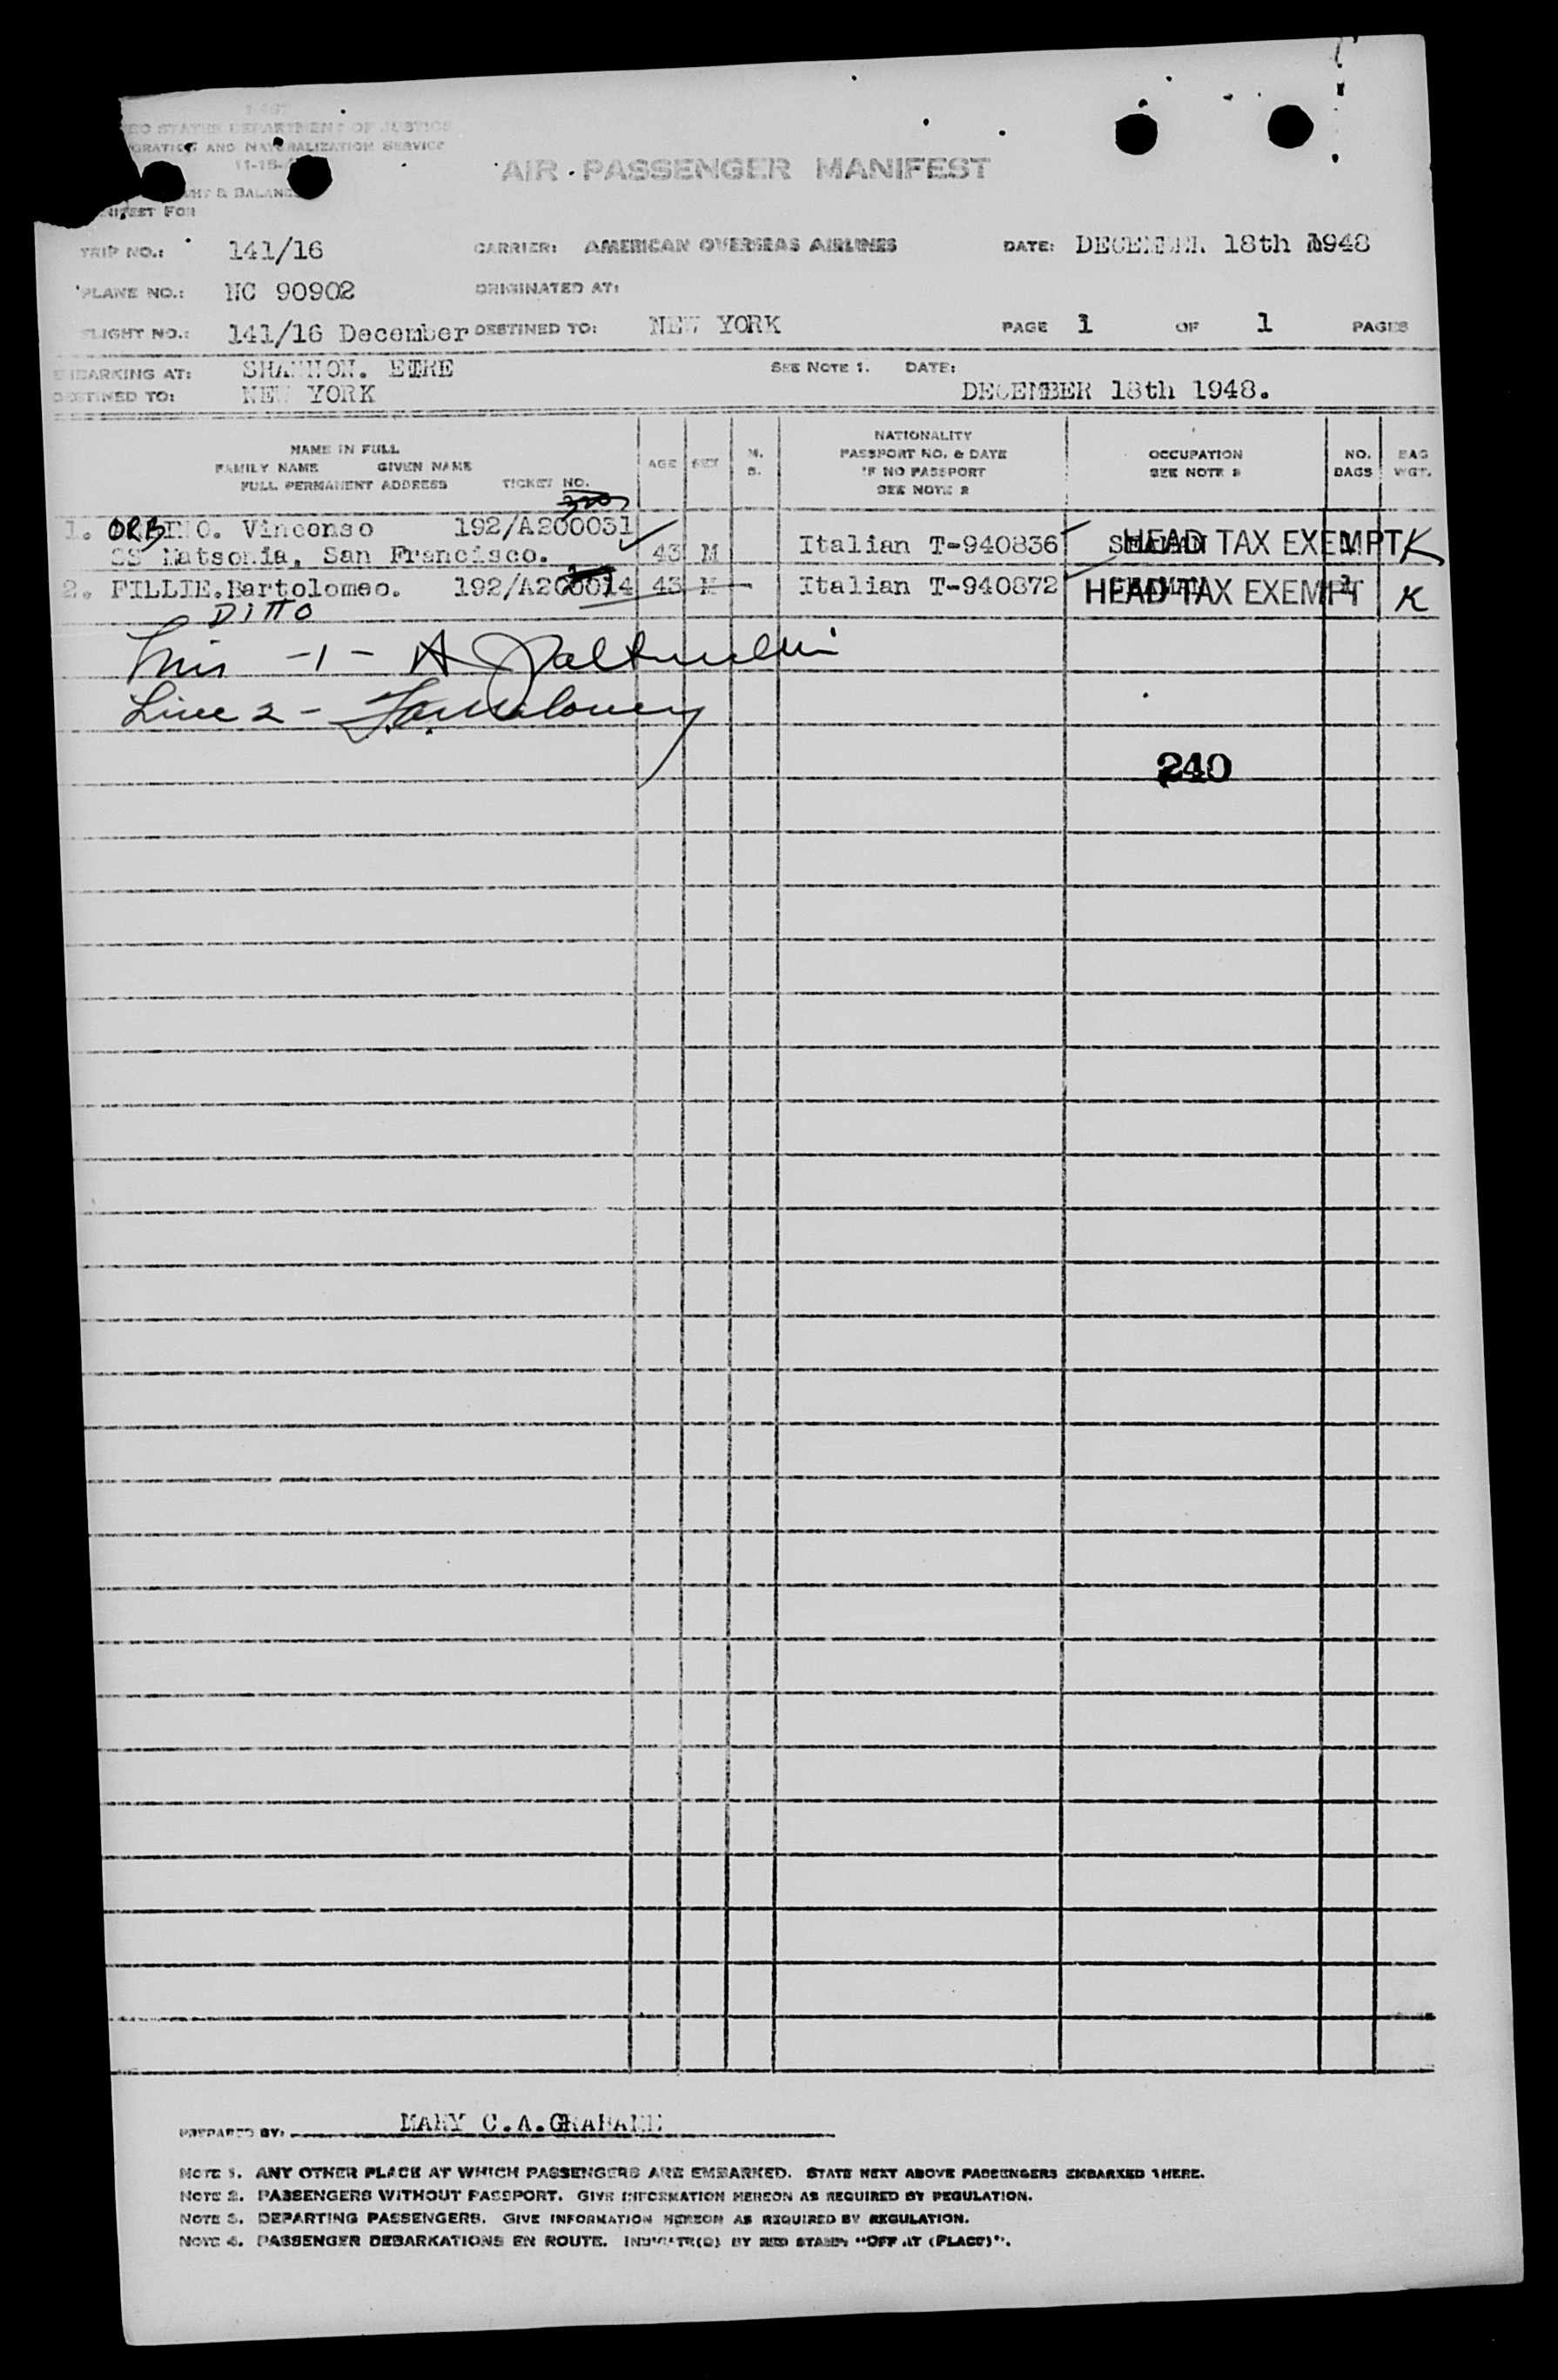 STATES DEPARTMENT OF JUSTICE
AND NATURALIZATION SERVICE
& BALANCE
FOR
AIR PASSENGER MANIFEST
TRIP NO.: 141/16 CARRIER: AMERICAN OVERSEAS AIRLINES DATE: DECEMBER 18th 1948
PLANE NO.: NC 90902 ORIGINATED AT:
FLIGHT NO.: 141/16 December DESTINED TO: NEW YORK PAGE 1 OF 1 PAGES
EMBARKING AT: SHANNON. EIRE SEE NOTE 1. DATE:
DESTINED TO: NEW YORK DECEMBER 18th 1948.
NAME IN FULL
FAMILY NAME GIVEN NAME
FULL PERMANENT ADDRESS TICKET NO. AGE SEX M. S. NATIONALITY PASSPORT NO. & DATE IF NO PASSPORT SEE NOTE 2 OCCUPATION SEE NOTE 3 NO. BAGS BAG WGT.
1. Vincenso 192/A200031
SS Matsonia, San Francisco. 43 M Italian T-940836 SEAMAN HEAD TAX EXEMPT K
2. FILLIE.Bartolomeo. 192/A200014 43 M Italian T-940872 HEAD TAX EXEMPT K
DITTO
-1- A
Line 2 -
240
PREPARED BY: MARY C.A.GRAHAME
NOTE 1. ANY OTHER PLACE AT WHICH PASSENGERS ARE EMBARKED. STATE NEXT ABOVE PASSENGERS EMBARKED THERE.
NOTE 2. PASSENGERS WITHOUT PASSPORT. GIVE INFORMATION HEREON AS REQUIRED BY REGULATION.
NOTE 3. DEPARTING PASSENGERS. GIVE INFORMATION HEREON AS REQUIRED BY REGULATION.
NOTE 4. PASSENGER DEBARKATIONS EN ROUTE. INDICATE(D) BY RED STAMP "OFF AT (PLACE)".